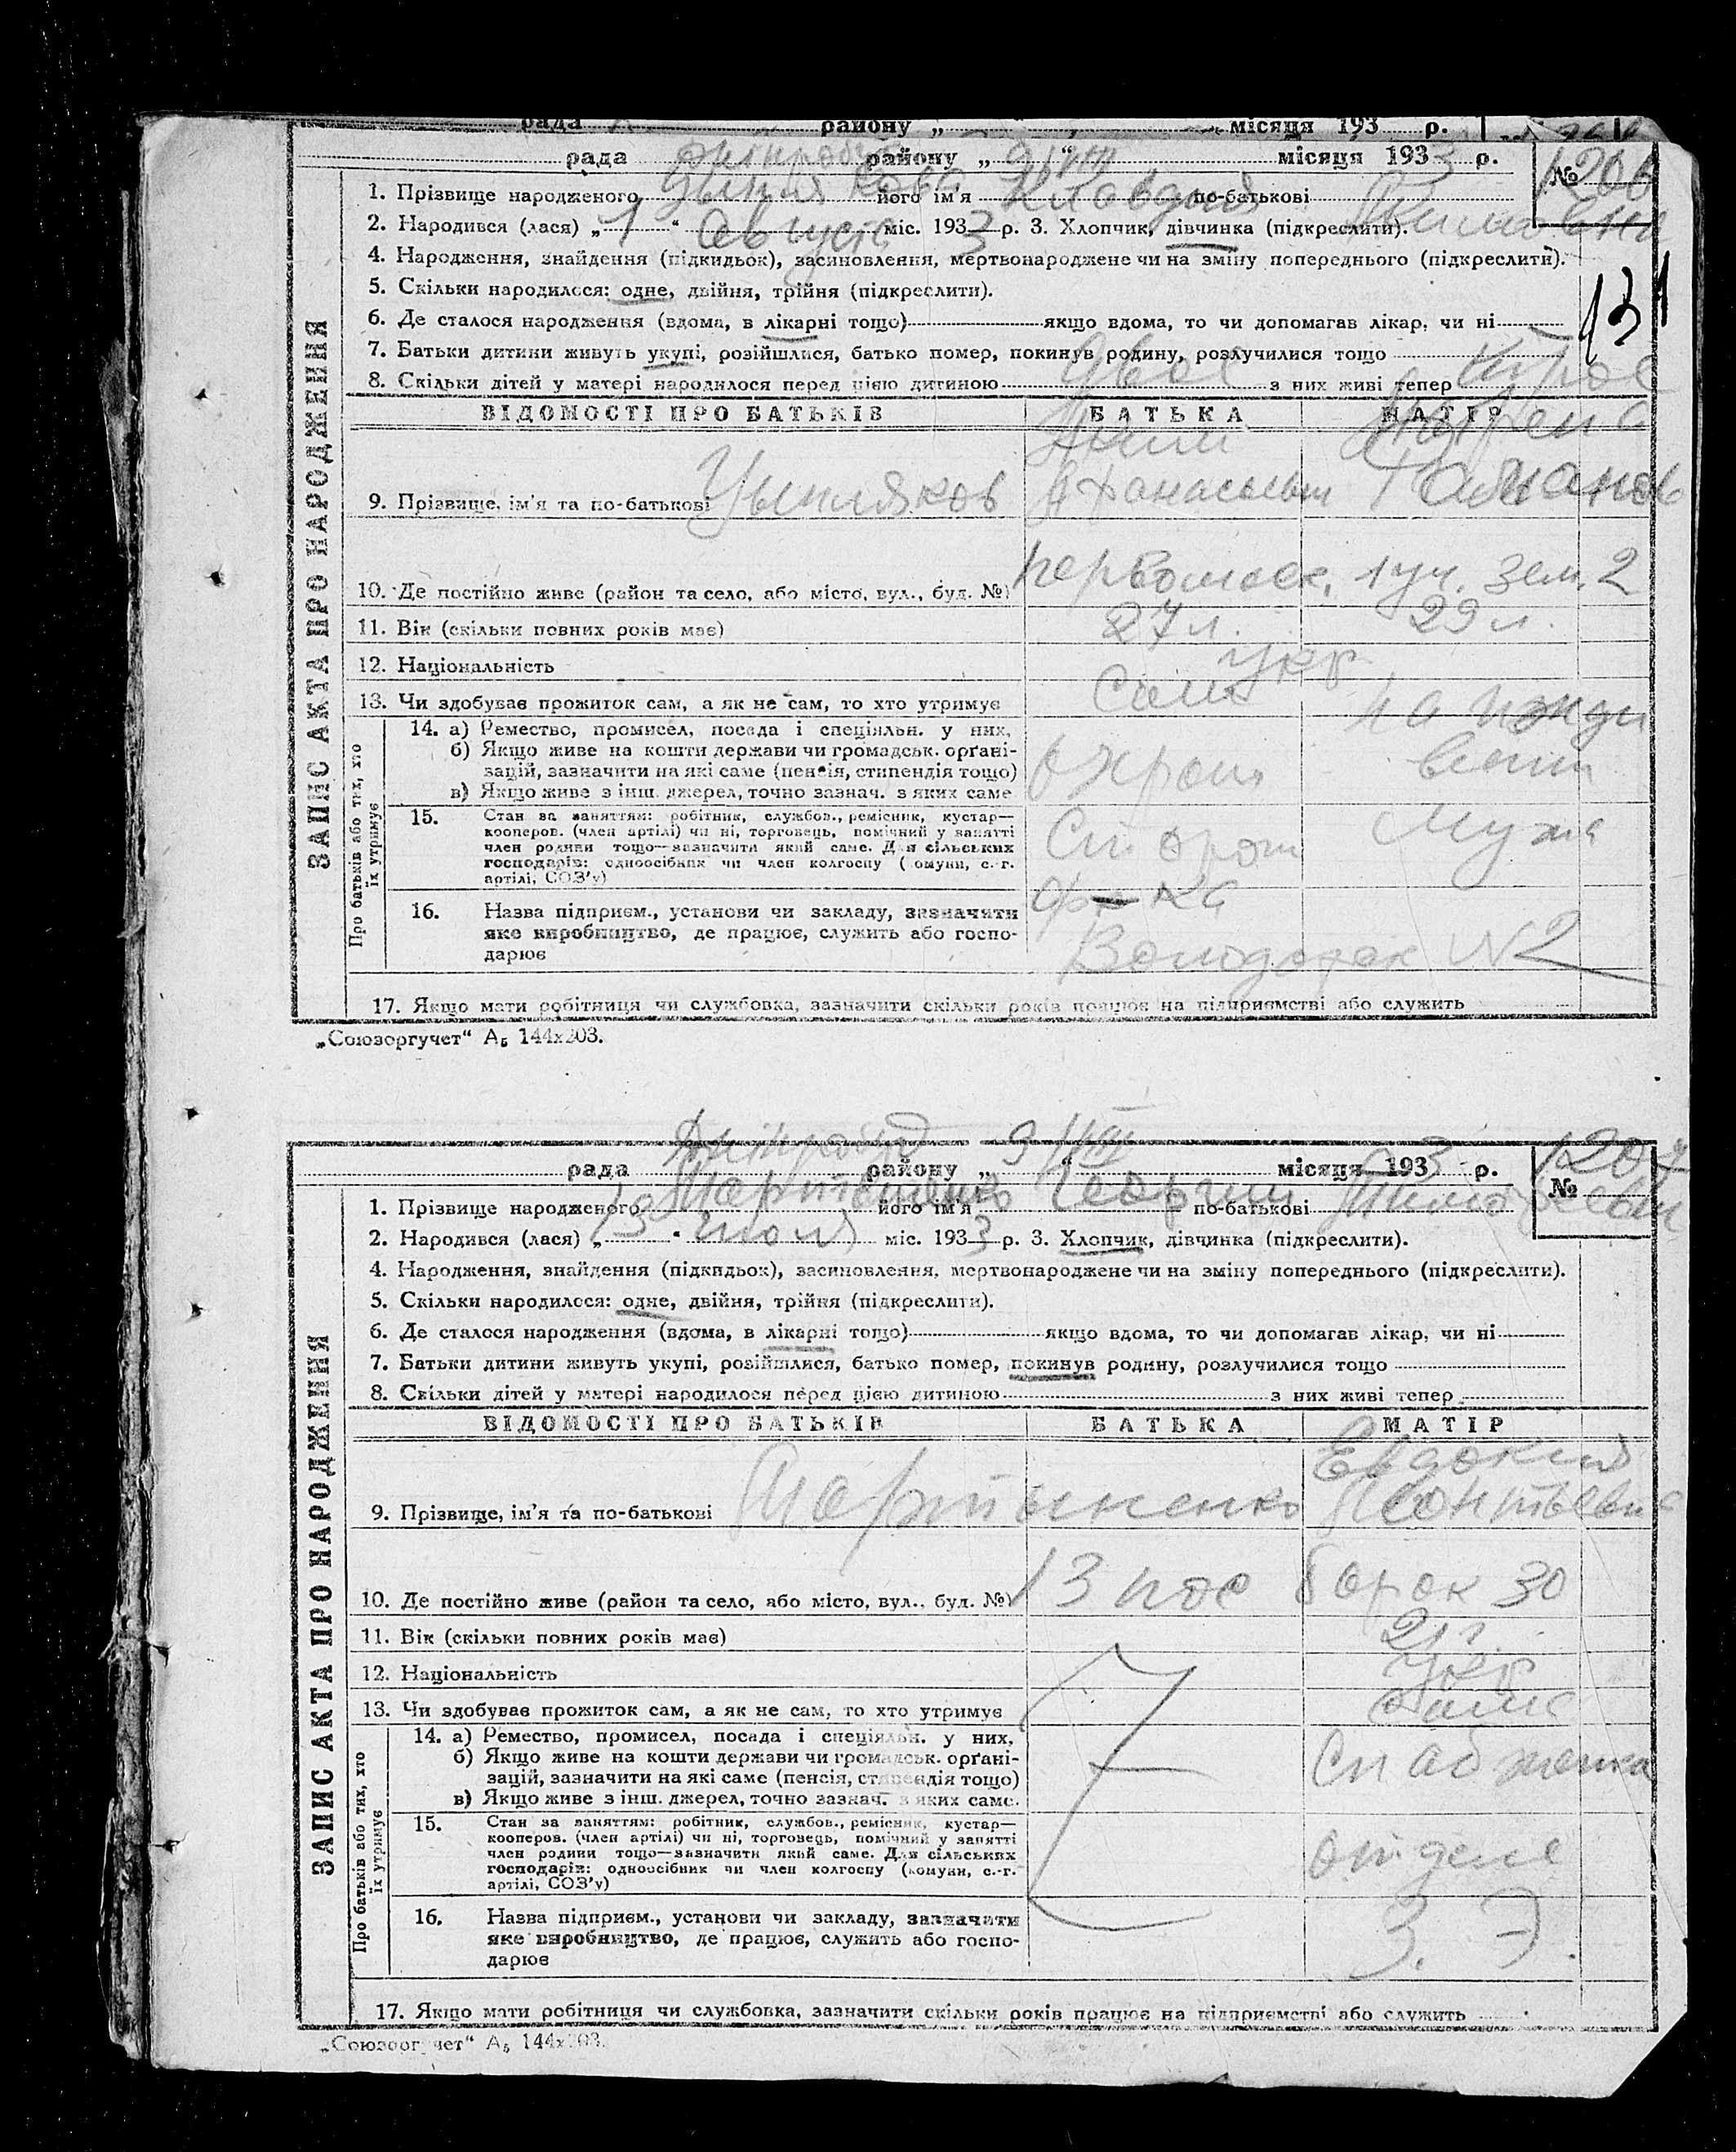 рада району „ “ місяця 193 р.
рада Дніпробуд району „ 9/VIII “ місяця 1933 р. № 1206
1. Прізвище народженого Цыплякова його ім'я Клавдия по-батькові Акимовна
2. Народився (лася) „ 1 “ Августа міс. 1933 р. 3. Хлопчик, дівчинка (підкреслити).
4. Народження, знайдення (підкидьок), засиновлення, мертвонароджене чи на зміну попереднього (підкреслити).
131
5. Скільки народилося: одне, двійня, трійня (підкреслити).
6. Де сталося народження (вдома, в лікарні тощо) якщо вдома, то чи допомагав лікар, чи ні
7. Батьки дитини живуть укупі, розійшлися, батько помер, покинув родину, розлучилися тощо
8. Скільки дітей у матері народилося перед цією дитиною двое з них живі тепер трое
ВІДОМОСТІ ПРО БАТЬКІВ БАТЬКА МАТІР
Аким
9. Прізвище, ім'я та по-батькові Цыпляков Афанасьевич
10. Де постійно живе (район та село, або місто, вул., буд. №) первомаек. 1 уч. зем. 2
11. Вік (скільки повних років має) 27 л. 29 л.
12. Національність укр
13. Чи здобував прожиток сам, а як не сам, то хто утримує Сам на ижди
14. а) Ремество, промисел, посада і спеціяльн. у них,
б) Якщо живе на кошти держави чи громадськ. орґані-
зацій, зазначити на які саме (пенсія, стипендія тощо) охрана вении
в) Якщо живе з інш. джерел, точно зазнач. з яких саме
15. Стан за заняттям: робітник, службов., ремісник, кустар—
кооперов. (член артілі) чи ні, торговець, помічний у занятті
член родини тощо—зазначити який саме. Для сільських Сторож мужа
господарів: одноосібник чи член колгоспу (комуни, с.-г.
артілі, СОЗ'у)
16. Назва підприєм., установи чи закладу, зазначити
яке виробництво, де працює, служить або госпо-
дарює N 2
17. Якщо мати робітниця чи службовка, зазначити скільки років працює на підприємстві або служить
ЗАПИС АКТА ПРО НАРОДЖЕННЯ
Про батьків або тих, хто
їх утримує
„Союзоргучет“ А₅ 144х203.
рада Дніпробуд району „ 9/VIII “ місяця 1933 р. № 1207
1. Прізвище народженого Мартыненко його ім'я Георгий по-батькові Тимофеевич
2. Народився (лася) „ 13 “ июля міс. 1933 р. 3. Хлопчик, дівчинка (підкреслити).
4. Народження, знайдення (підкидьок), засиновлення, мертвонароджене чи на зміну попереднього (підкреслити).
5. Скільки народилося: одне, двійня, трійня (підкреслити).
6. Де сталося народження (вдома, в лікарні тощо) якщо вдома, то чи допомагав лікар, чи ні
7. Батьки дитини живуть укупі, розійшлися, батько помер, покинув родину, розлучилися тощо
8. Скільки дітей у матері народилося перед цією дитиною з них живі тепер
ВІДОМОСТІ ПРО БАТЬКІВ БАТЬКА МАТІР
Евдокия
9. Прізвище, ім'я та по-батькові Мартыненко Леонтьевна
10. Де постійно живе (район та село, або місто, вул., буд. №) 13 пос барак 30
11. Вік (скільки повних років має) 21 г.
12. Національність Укр
13. Чи здобував прожиток сам, а як не сам, то хто утримує сама
14. а) Ремество, промисел, посада і спеціяльн. у них,
б) Якщо живе на кошти держави чи громадськ. орґані-
зацій, зазначити на які саме (пенсія, стипендія тощо)
в) Якщо живе з інш. джерел, точно зазнач. з яких саме.
15. Стан за заняттям: робітник, службов., ремісник, кустар—
кооперов. (член артілі) чи ні, торговець, помічний у занятті
член родини тощо—зазначити який саме. Для сільських
господарів: одноосібник чи член колгоспу (комуни, с.-г.
артілі, СОЗ'у)
16. Назва підприєм., установи чи закладу, зазначити
яке виробництво, де працює, служить або госпо- З. Э.
дарює
17. Якщо мати робітниця чи службовка, зазначити скільки років працює на підприємстві або служить
ЗАПИС АКТА ПРО НАРОДЖЕННЯ
Про батьків або тих, хто
їх утримує
„Союзоргучет“ А₅ 144х203.